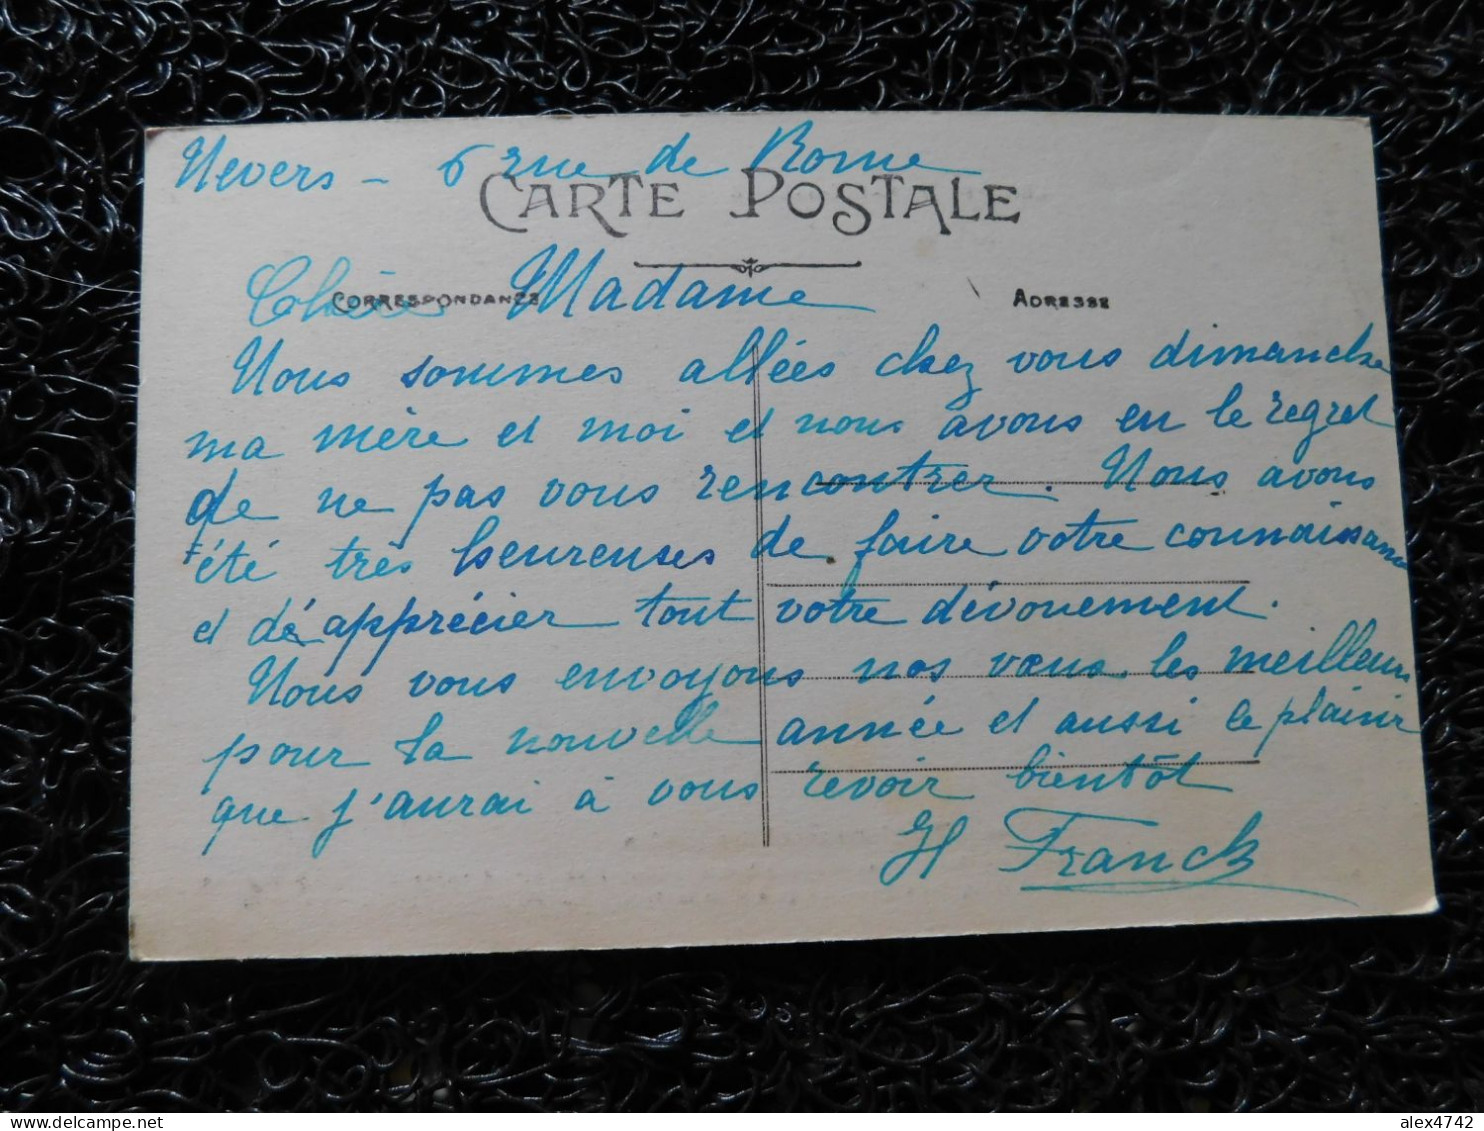 Nevers - 6 rue de Rome
CARTE POSTALE
CORRESPONDANCE
ADRESSE
Chère Madame
Nous sommes allées chez vous dimanche
ma mère et moi et nous avons eu le regret
de ne pas vous rencontrer. Nous avons
été très heureuses de faire votre connaissance
et d'apprécier tout votre dévouement.
Nous vous envoyons nos vœux les meilleurs
pour la nouvelle année et aussi le plaisir
que j'aurai à vous revoir bientôt
H Franck
alex4742